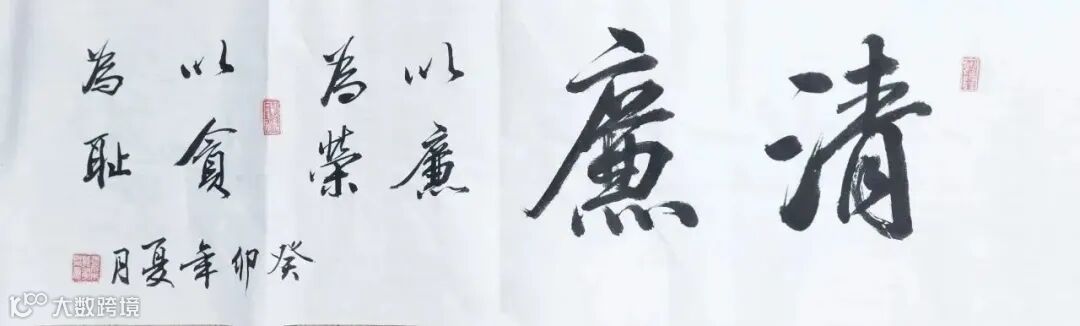 清廉
以廉
為榮
以貪
為耻
癸卯年夏月
大数跨境